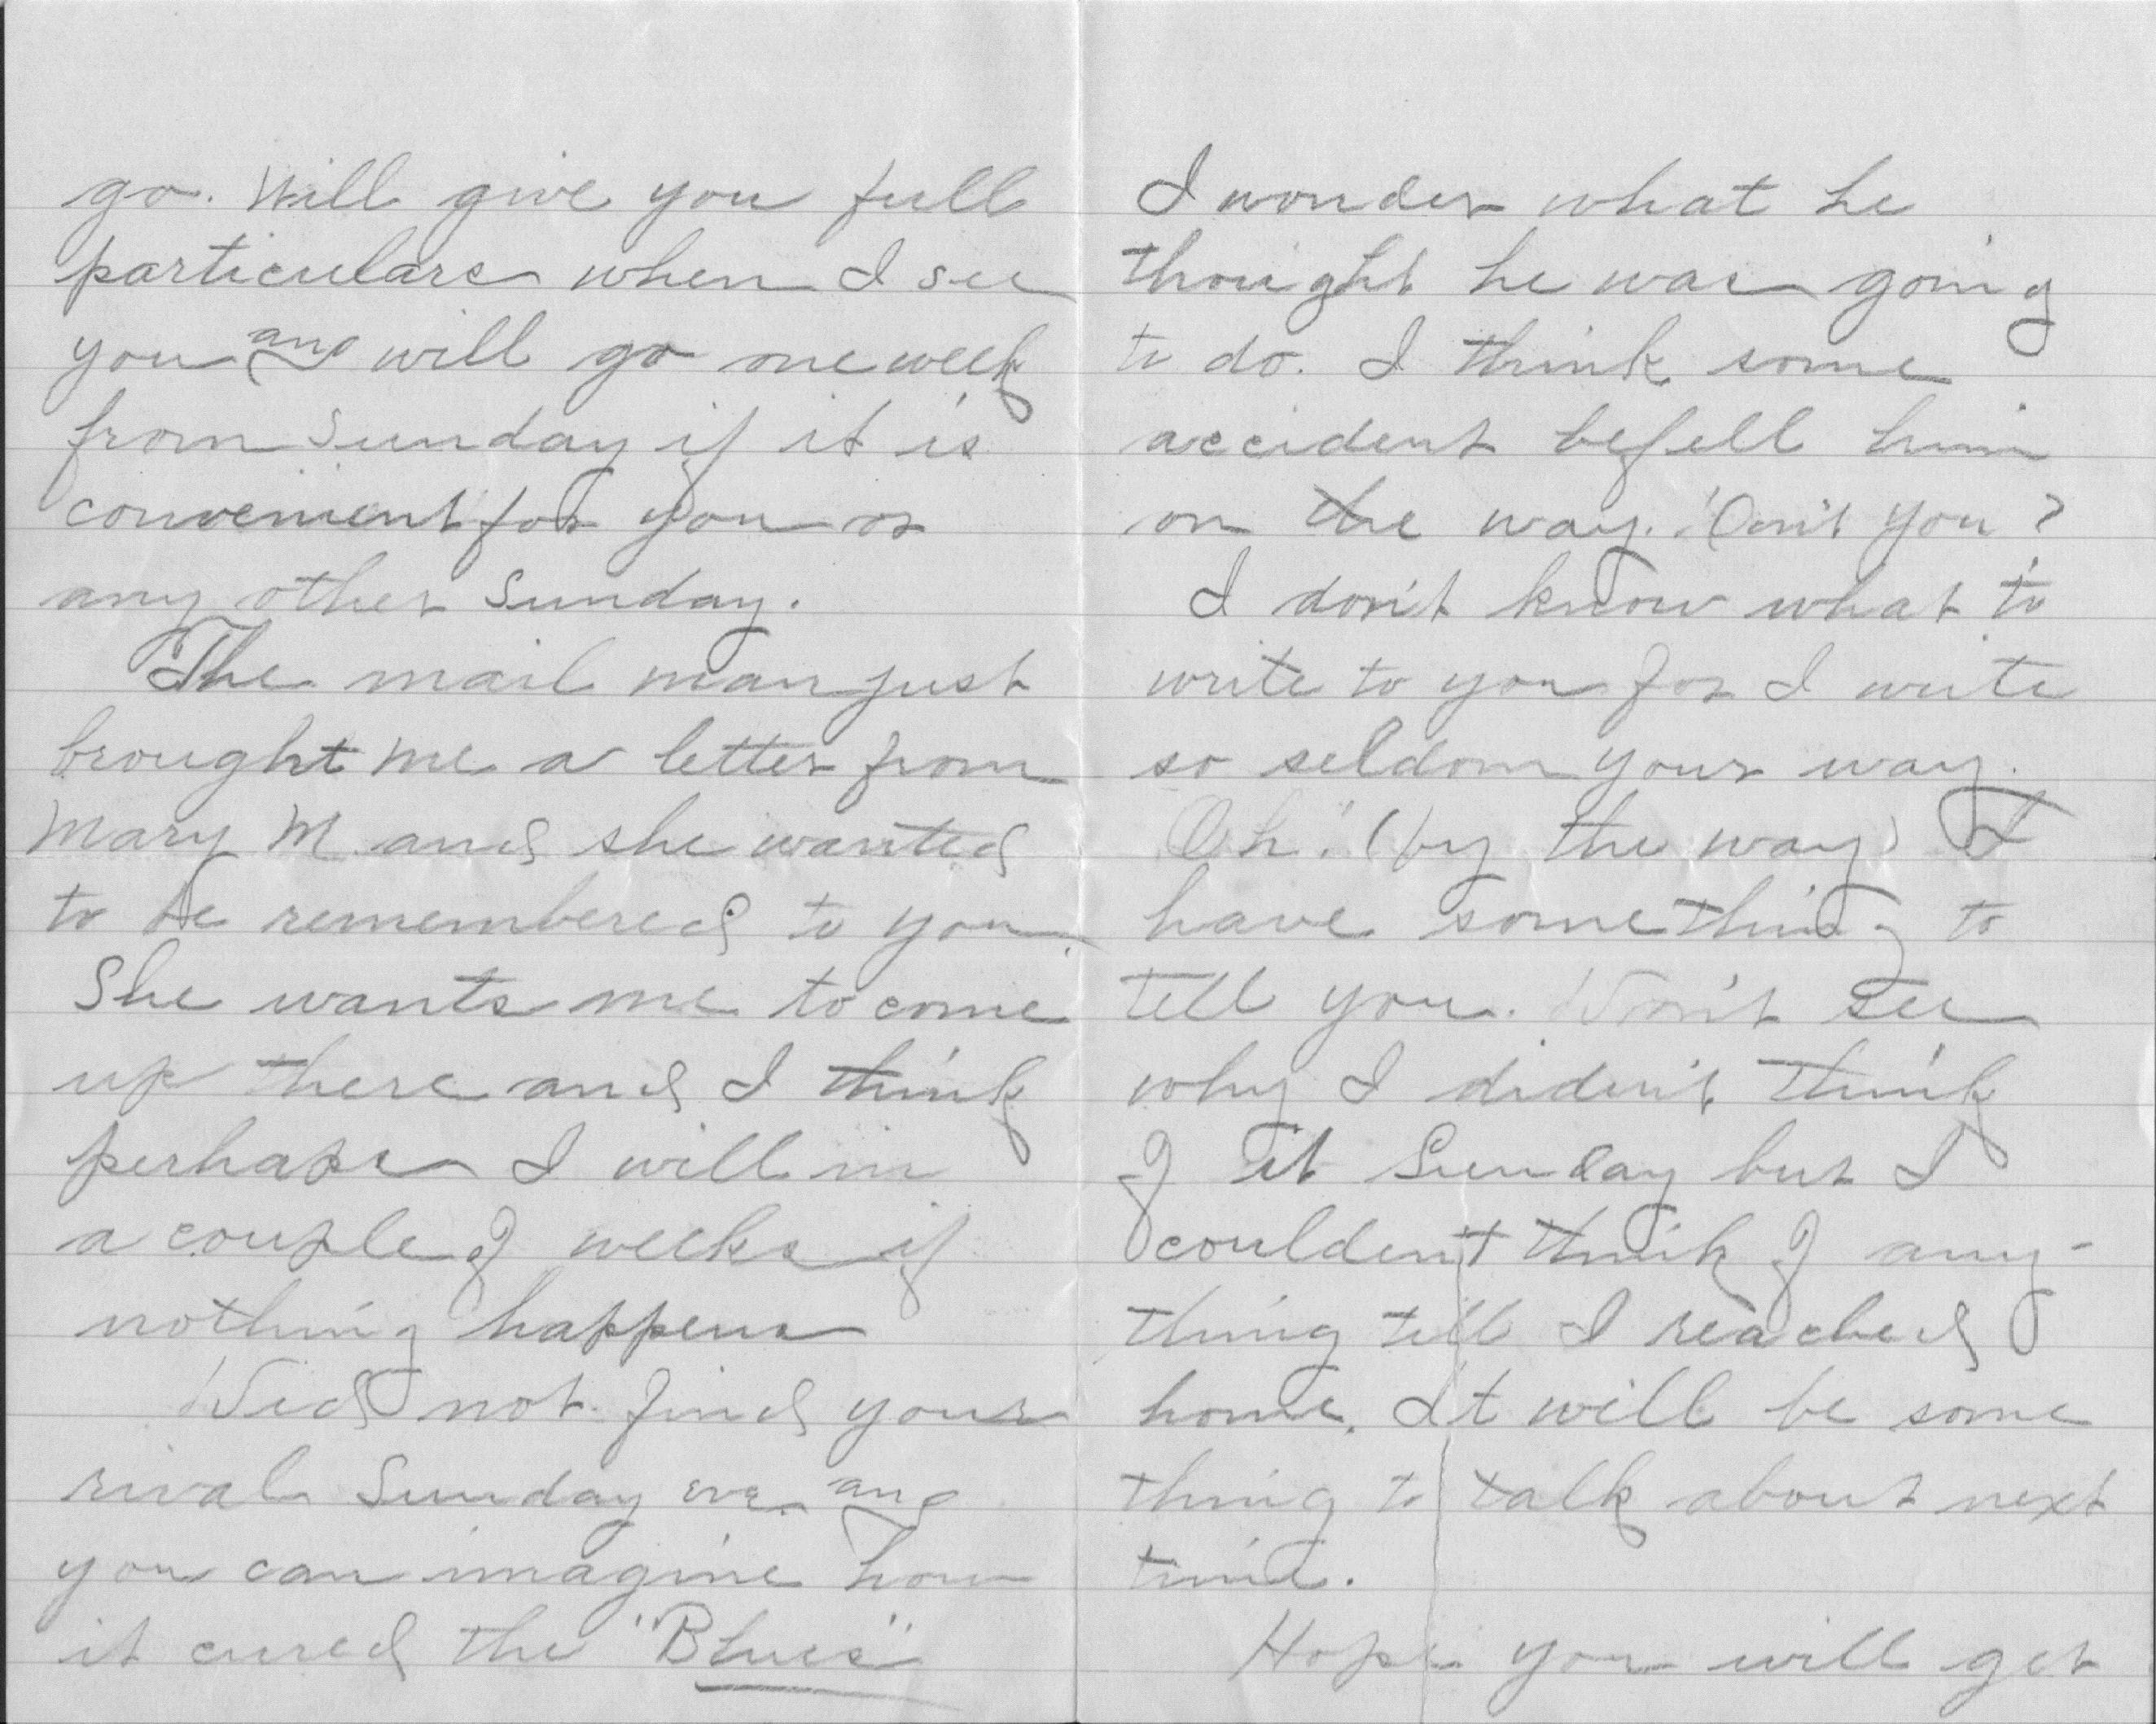 go. Will give you full
particulars when I see
you and will go one week
from Sunday if it is
convenient for you or
any other Sunday.
The mail man just
brought me a letter from
Mary M. and she wanted
to be remembered to you.
She wants me to come
up there and I think
perhaps I will in
a couple of weeks if
nothing happens
Did not find your
rival Sunday eve and
you can imagine how
it cured the "Blues"
I wonder what he
thought he was going
to do. I think some
accident befell him
on the way. Don't you?
I don't know what to
write to you for I write
so seldom your way.
Oh! (by the way) I
have something to
tell you. Don't see
why I diden't think
of it Sunday but I
couldent think of any-
thing till I reached
home. It will be some
thing to talk about next
time.
Hope you will get